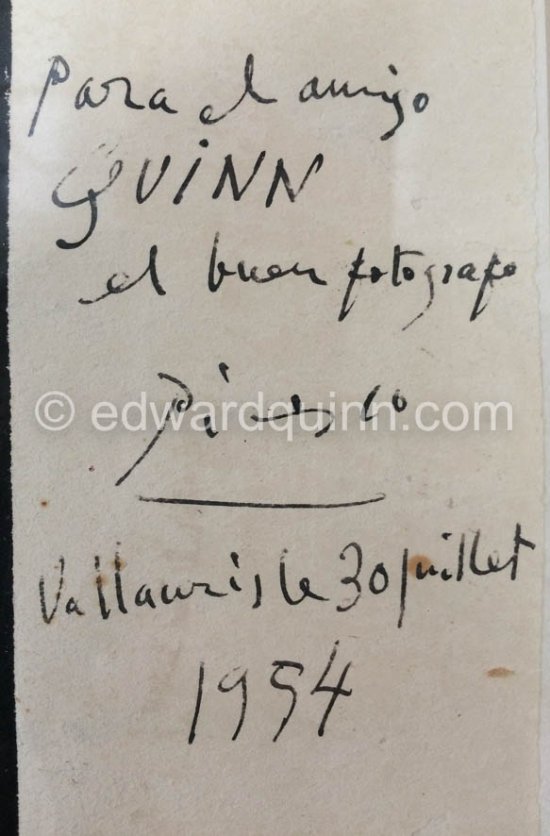 Para el amigo
QUINN
el buen fotografo
Picasso
© edwardquinn.com
Vallauris le 30 juillet
1954